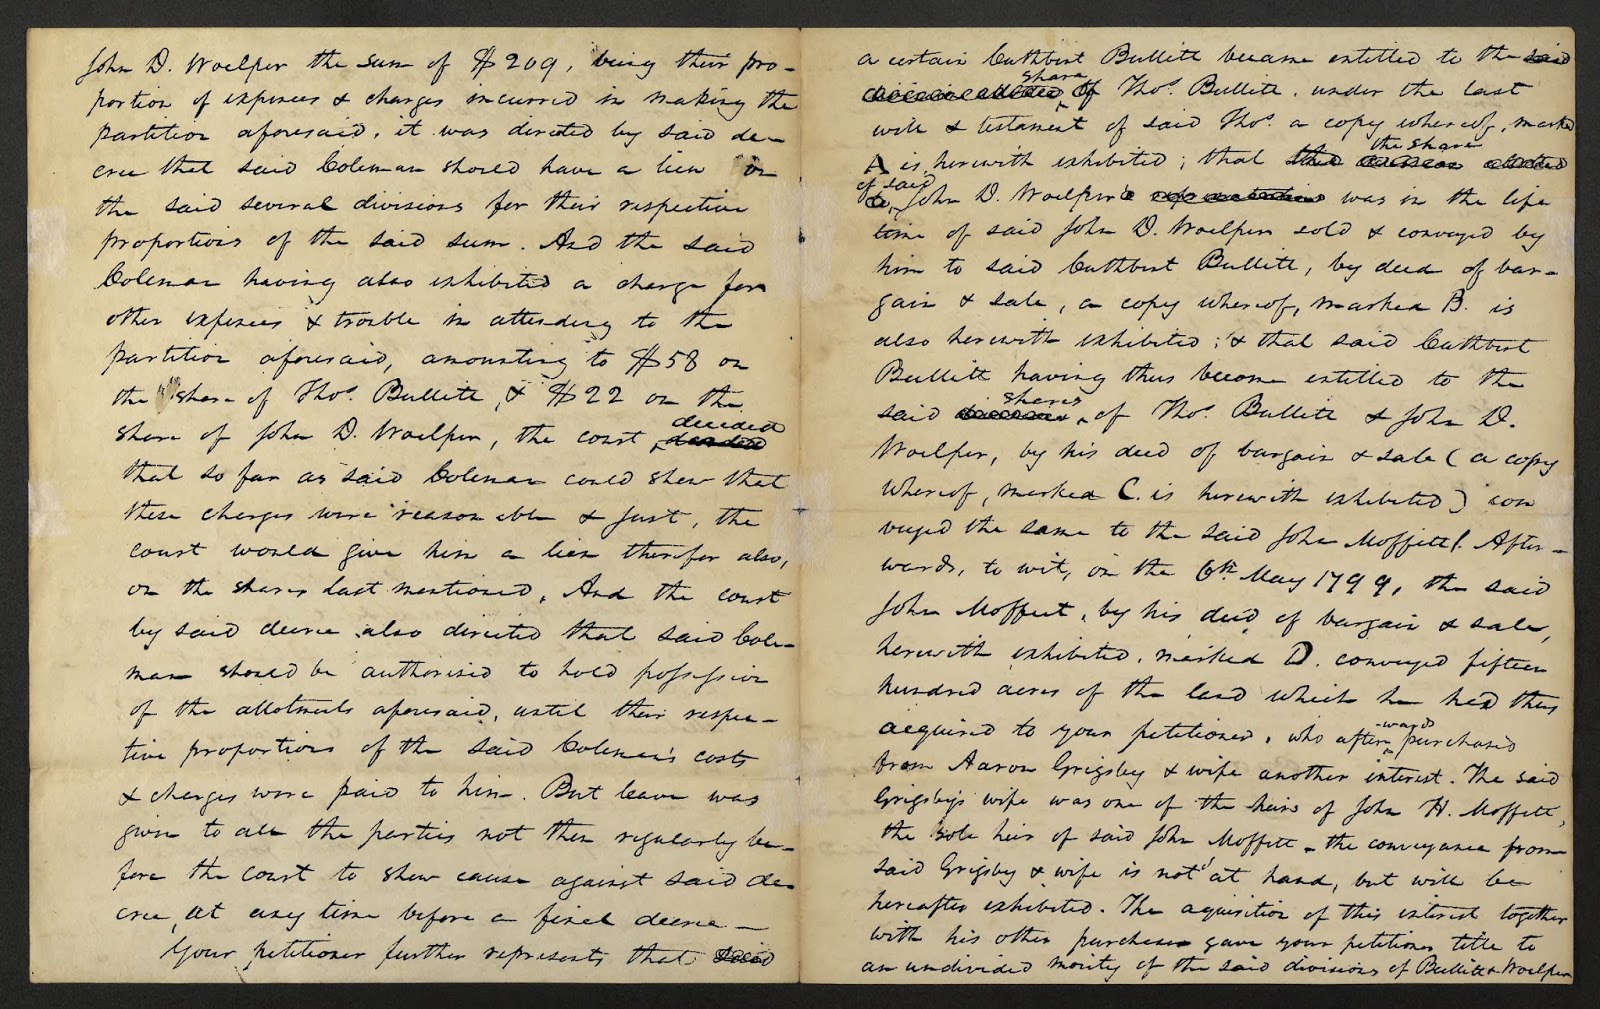 John D. Woelper the sum of $209, being their pro-
portion of expenses & charges incurred in making the
partition aforesaid, it was directed by said de-
cree that said Coleman should have a lien on
the said several divisions for their respective
proportions of the said sum. And the said
Coleman having also exhibited a charge for
other expenses & trouble in attending to the
partition aforesaid, amounting to $58 on
the share of Thos. Bullitt, & $22 on the
share of John D. Woelper, the court decided
that so far as said Coleman could shew that
these charges were reasonable & just, the
court would give him a lien therefor also,
on the shares last mentioned. And the court
by said decree also directed that said Cole-
man should be authorised to hold possession
of the allotments aforesaid, until their respec-
tive proportions of the said Coleman's costs
& charges were paid to him. But leave was
given to all the parties not then regularly be-
fore the court to shew cause against said de-
cree, at any time before a final decree —
Your petitioner further represents that said
a certain Cuthbert Bullitt became entitled to the said
share of Thos. Bullitt, under the last
will & testament of said Thos. a copy whereof, marked
A is herewith exhibited; that the share
of said John D. Woelper was in the life
time of said John D. Woelper sold & conveyed by
him to said Cuthbert Bullitt, by deed of bar-
gain & sale, a copy whereof, marked B. is
also herewith exhibited; & that said Cuthbert
Bullitt having thus become entitled to the
said shares of Thos. Bullitt & John D.
Woelper, by his deed of bargain & sale (a copy
whereof, marked C. is herewith exhibited) con
veyed the same to the said John Moffett. After-
wards, to wit, on the 6th May 1799, the said
John Moffett, by his deed of bargain & sale,
herewith exhibited, marked D. conveyed fifteen
hundred acres of the land which he had thus
acquired to your petitioner, who after-wards purchased
from Aaron Grigsby & wife another interest. The said
Grigsby's wife was one of the heirs of John H. Moffett,
the sole heir of said John Moffett - the conveyance from
said Grigsby & wife is not at hand, but will be
hereafter exhibited. The aquisition of this interest together
with his other purchases gave your petitioner title to
an undivided moiety of the said divisions of Bullitt & Woelper